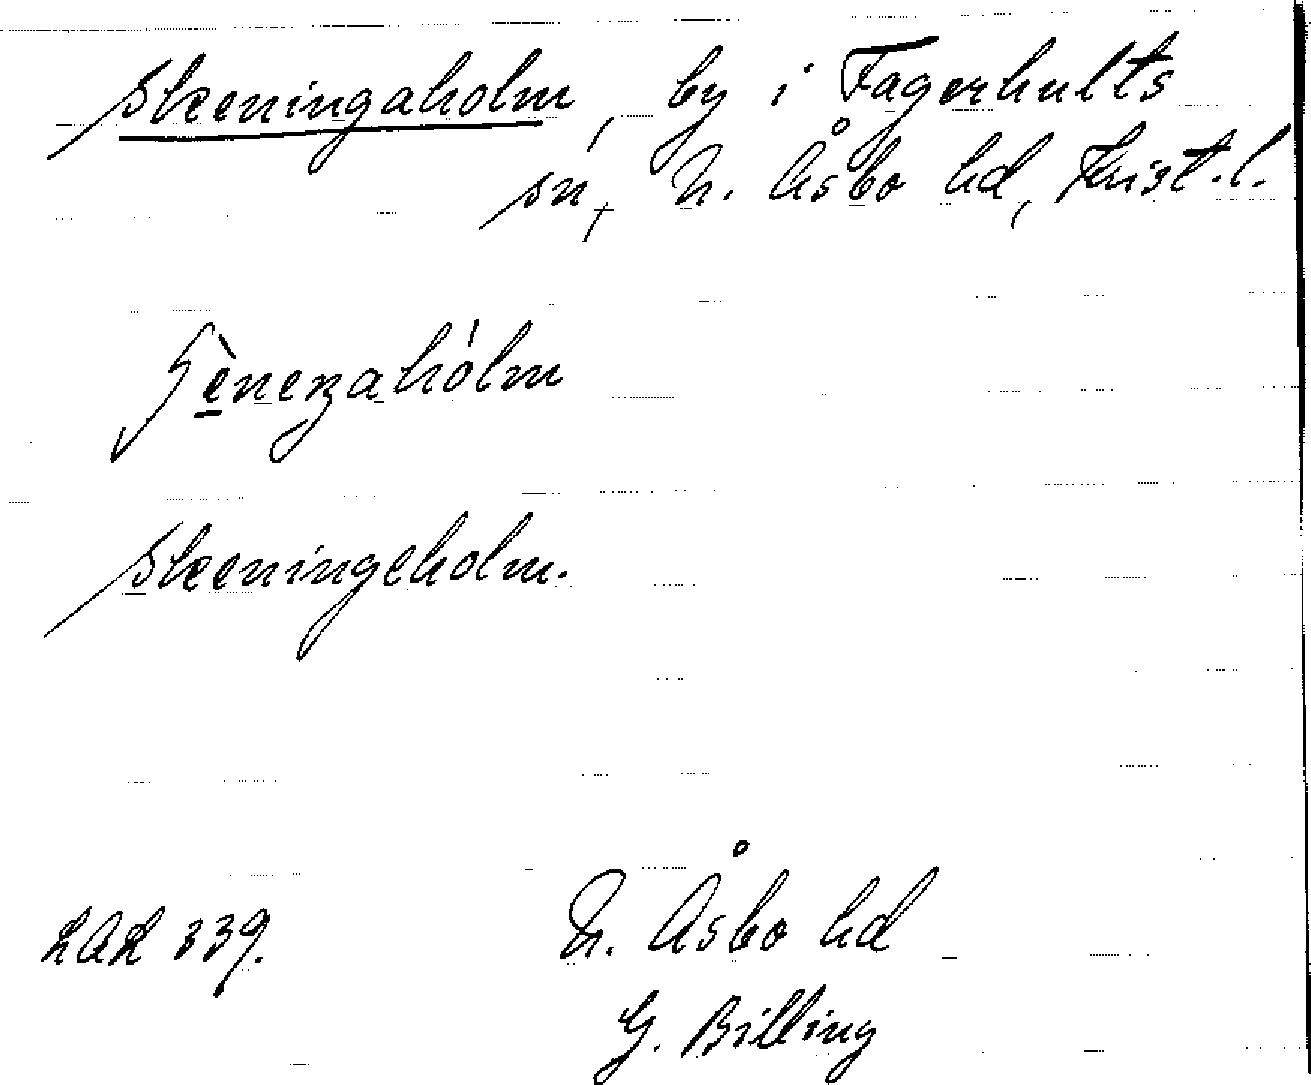 Skeeningaholm, by i Fagerhults
sn, N. Åsbo hd, Krist. l.
Skeeningeholm.
LAL 339. N. Åsbo hd
G. Billing